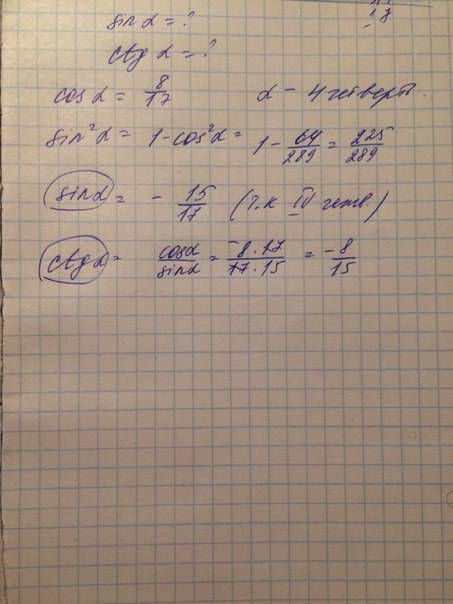 sin α = ?
ctg α = ?
cos α = 8/17 α – 4 четверть.
sin²α = 1 - cos²α = 1 - 64/289 = 225/289
sin α = - 15/17 (т.к IV четв.)
ctg α = cos α/sin α = -8·17/17·15 = -8/15